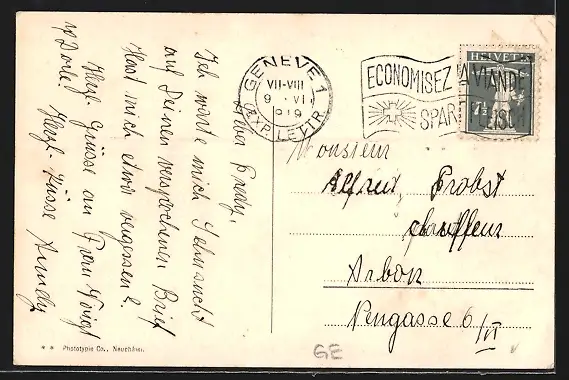 GENEVE 1
VII-VIII
9 . VI
1919
EXP. LETTR.
ECONOMISEZ LA VIANDE
SPART FLEISCH
HELVETIA
7½
Lieber Fredy,
Ich warte mich Sehnsucht
auf Deinen versprochenen Brief
Hast mich etwa vergessen?
Herzl. Grüsse an Fam. Voigt
Herzl. Küsse
Monsieur
Alfred Probst
chauffeur
Arbon
Rengasse 6/VI
GE
** Phototypie Co., Neuchâtel.